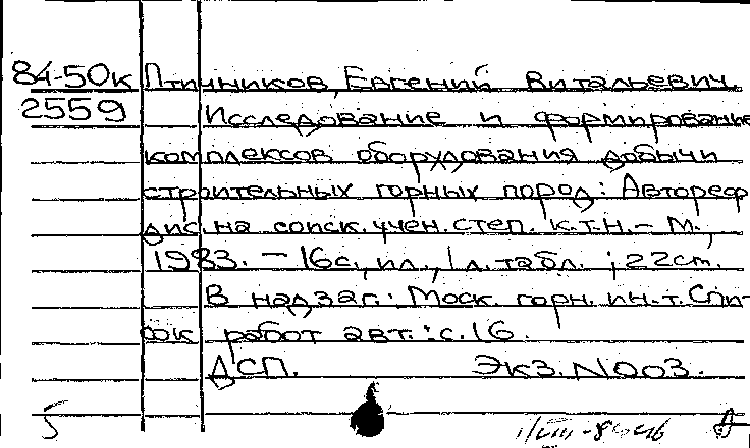 84-50к Птичников, Евгений Витальевич
2559 Исследование и формирование
комплексов оборудования добычи
строительных горных пород: Автореф
дис. на соиск. учен. степ. к.т.н. - М.,
1983. - 16с., ил., 1 л. табл. ; 22см.
В надзаг.: Моск. горн. ин-т. Спи-
сок работ авт.: с.16.
ДСП. Экз. N003.
5